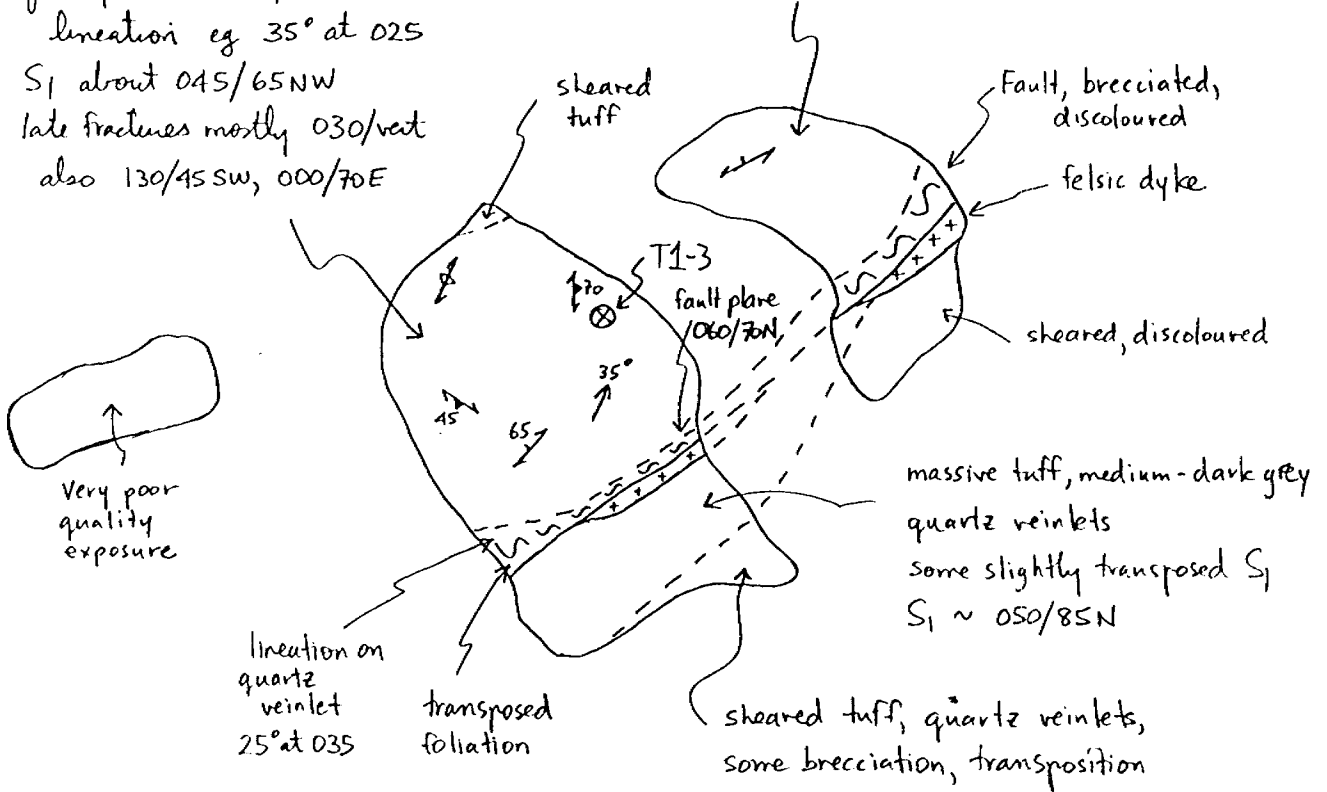 lineation eg 35° at 025
S1 about 045/65NW
late fractures mostly 030/vert
also 130/45 SW, 000/70E
sheared
tuff
Fault, brecciated,
discoloured
felsic dyke
T1-3
70
fault plane
060/70N
sheared, discoloured
35°
45
65
Very poor
quality
exposure
massive tuff, medium-dark grey
quartz veinlets
some slightly transposed S1
S1 ~ 050/85N
lineation on
quartz
veinlet
25° at 035
transposed
foliation
sheared tuff, quartz veinlets,
some brecciation, transposition